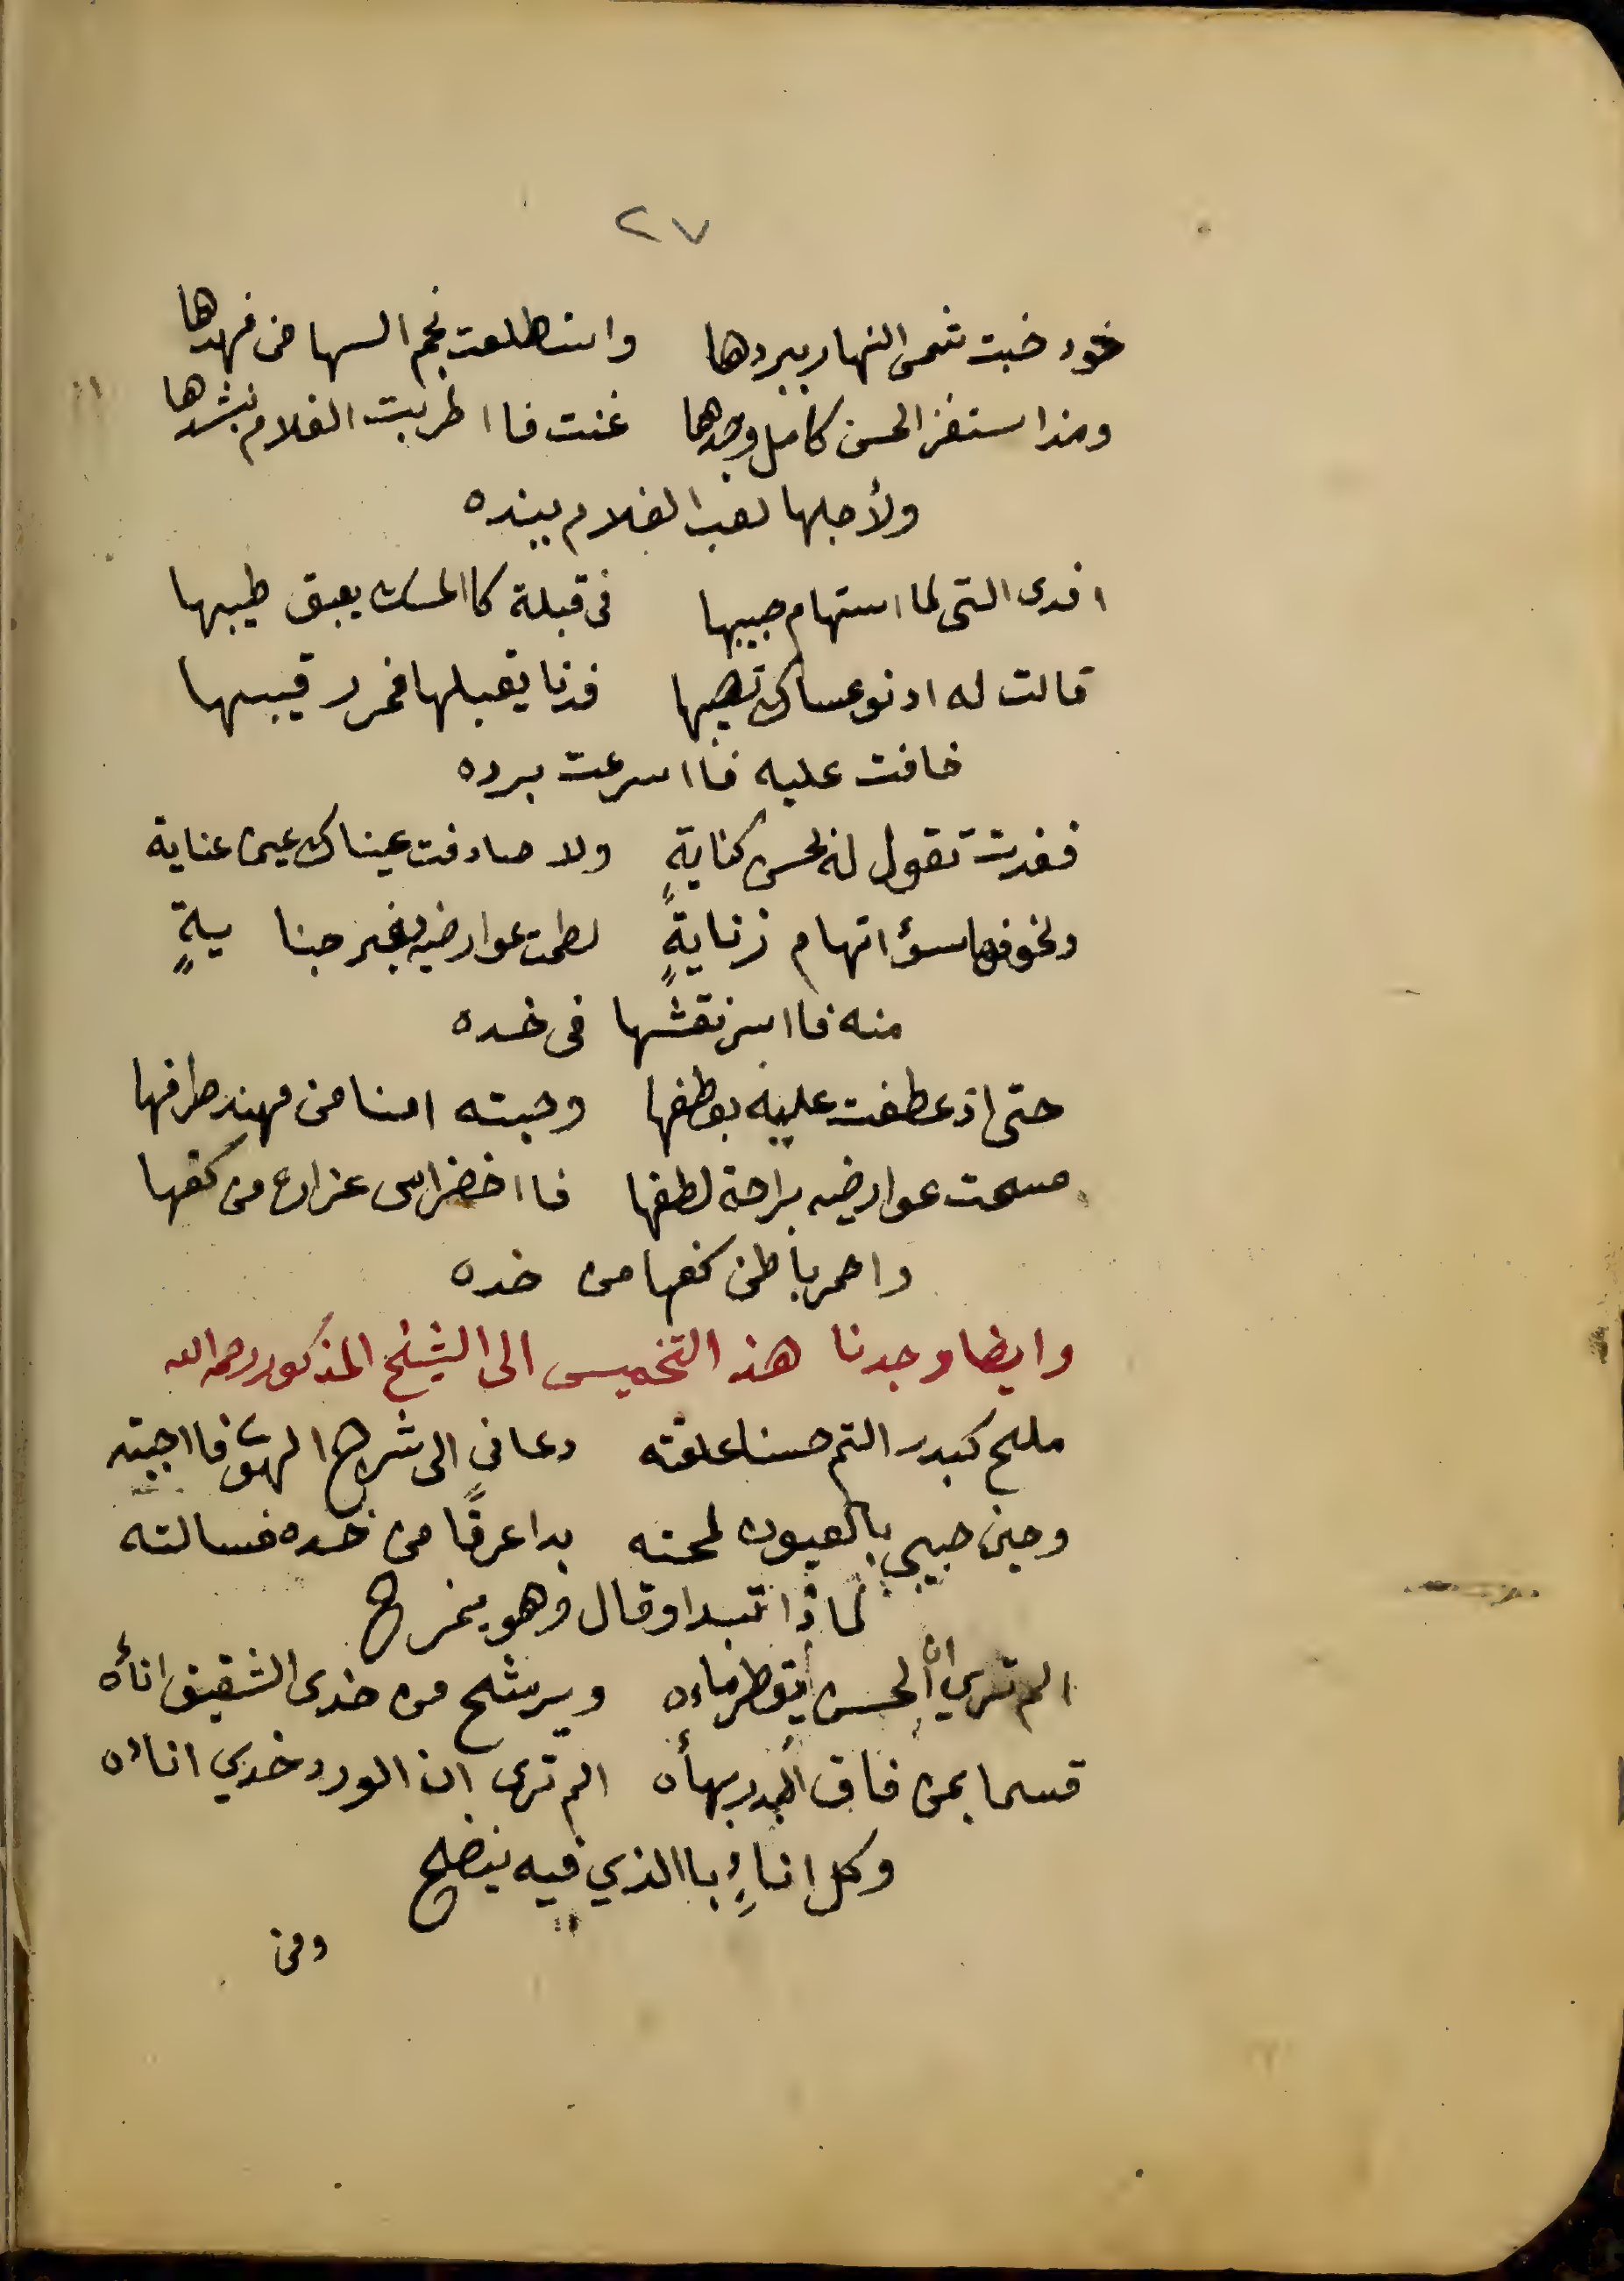 ٢٧
خود خبت شمس النهار ببردها واستطلعت نجم السها من فهدها
ومذ استفز الحسن كامل وجدها غنت فااطربت الغلام بشدها
ولأجلها لعب الغلام ببنده
افدى التى لما استهام حبيبها فى قبلة كاالمسك يعبق طيبها
قالت له ادنو عساك تصيبها فدنا يقبلها فمر رقيبها
خافت عليه فااسرعت برده
فغدت تقول له بحسن كناية ولا صادفت عيناك عين عناية
ولخوفها سؤ اتهام زناية لطمت عوارضه بغير جنا ية
منه فاا نقشها فى خده
حتى اذ عطفت عليه بعطفها وحبته امنا من مهند طرفها
مسحت عوارضه براحة لطفها فااخضر اس عزاره من كفها
واحمر باطن كفها من خده
وايضا وجدنا هذ التخميس الى الشيخ المذكور رحمه الله
مليح كبدر التم حسنا علقته دعانى الى شرح الهوى فااجبته
وحين حبيبي بالعيون لمحته بدا عرقًا من خده فسالته
لماذا تبدا وقال وهو يمزح
الم تري ان الحسن يقطر ماءه ويرشح من خدى الشقيق انأه
قسما بمن فاق البدر بهأه الم ترى ان الورد خدي اناءه
وكل اناءٍ باالذي فيه ينضح
ومن